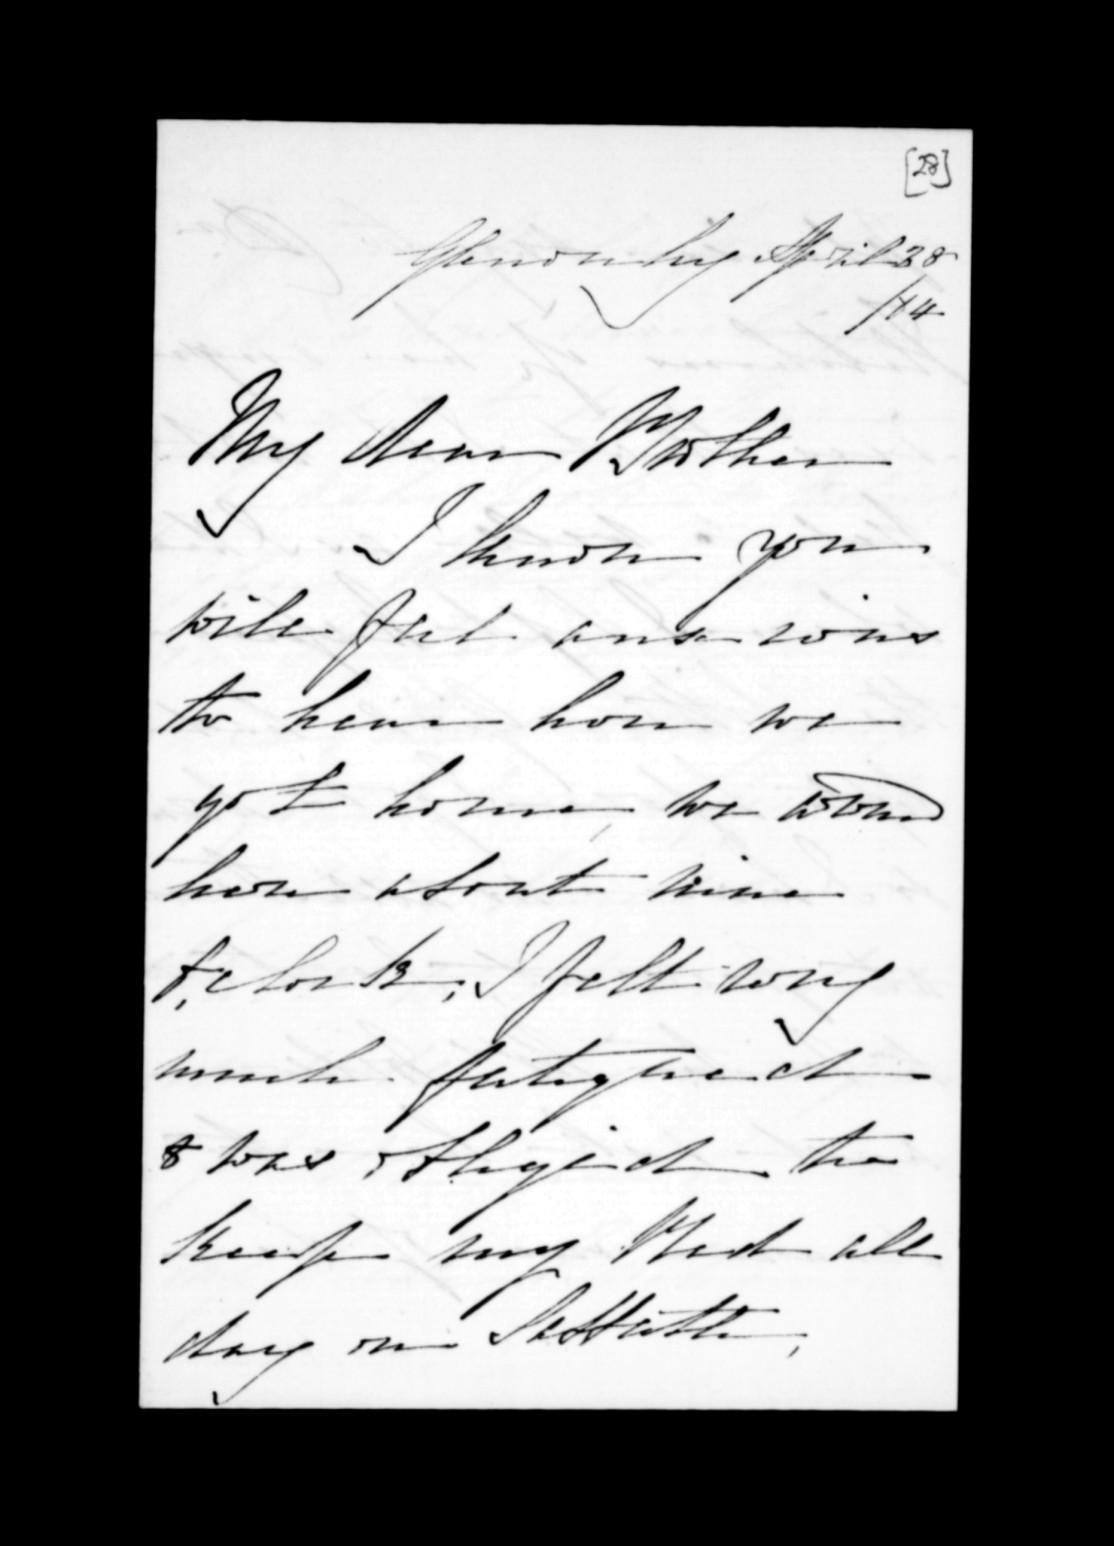 [28]
Glenorchy April 28
/74
My dear Brother
I know you
will feel anxious
to hear how we
got home, we
here about nine
o,clock, I felt very
much fatigued
& was obliged to
keep my Bed all
day on Sabbath,